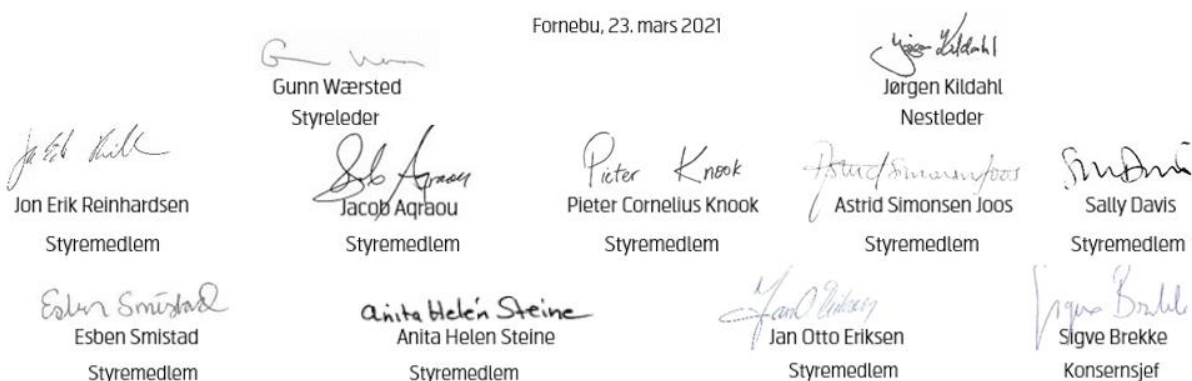 Fornebu, 23. mars 2021
Gunn Wærsted
Styreleder
Jørgen Kildahl
Jørgen Kildahl
Nestleder
Pieter Knook
Jon Erik Reinhardsen
Styremedlem
Jacob Aqraou
Styremedlem
Pieter Cornelius Knook
Styremedlem
Astrid Simonsen Joos
Astrid Simonsen Joos
Styremedlem
Sally Davis
Styremedlem
Esben Smistad
Esben Smistad
Styremedlem
Anita Helén Steine
Anita Helen Steine
Styremedlem
Jan Otto Eriksen
Styremedlem
Sigve Brekke
Konsernsjef